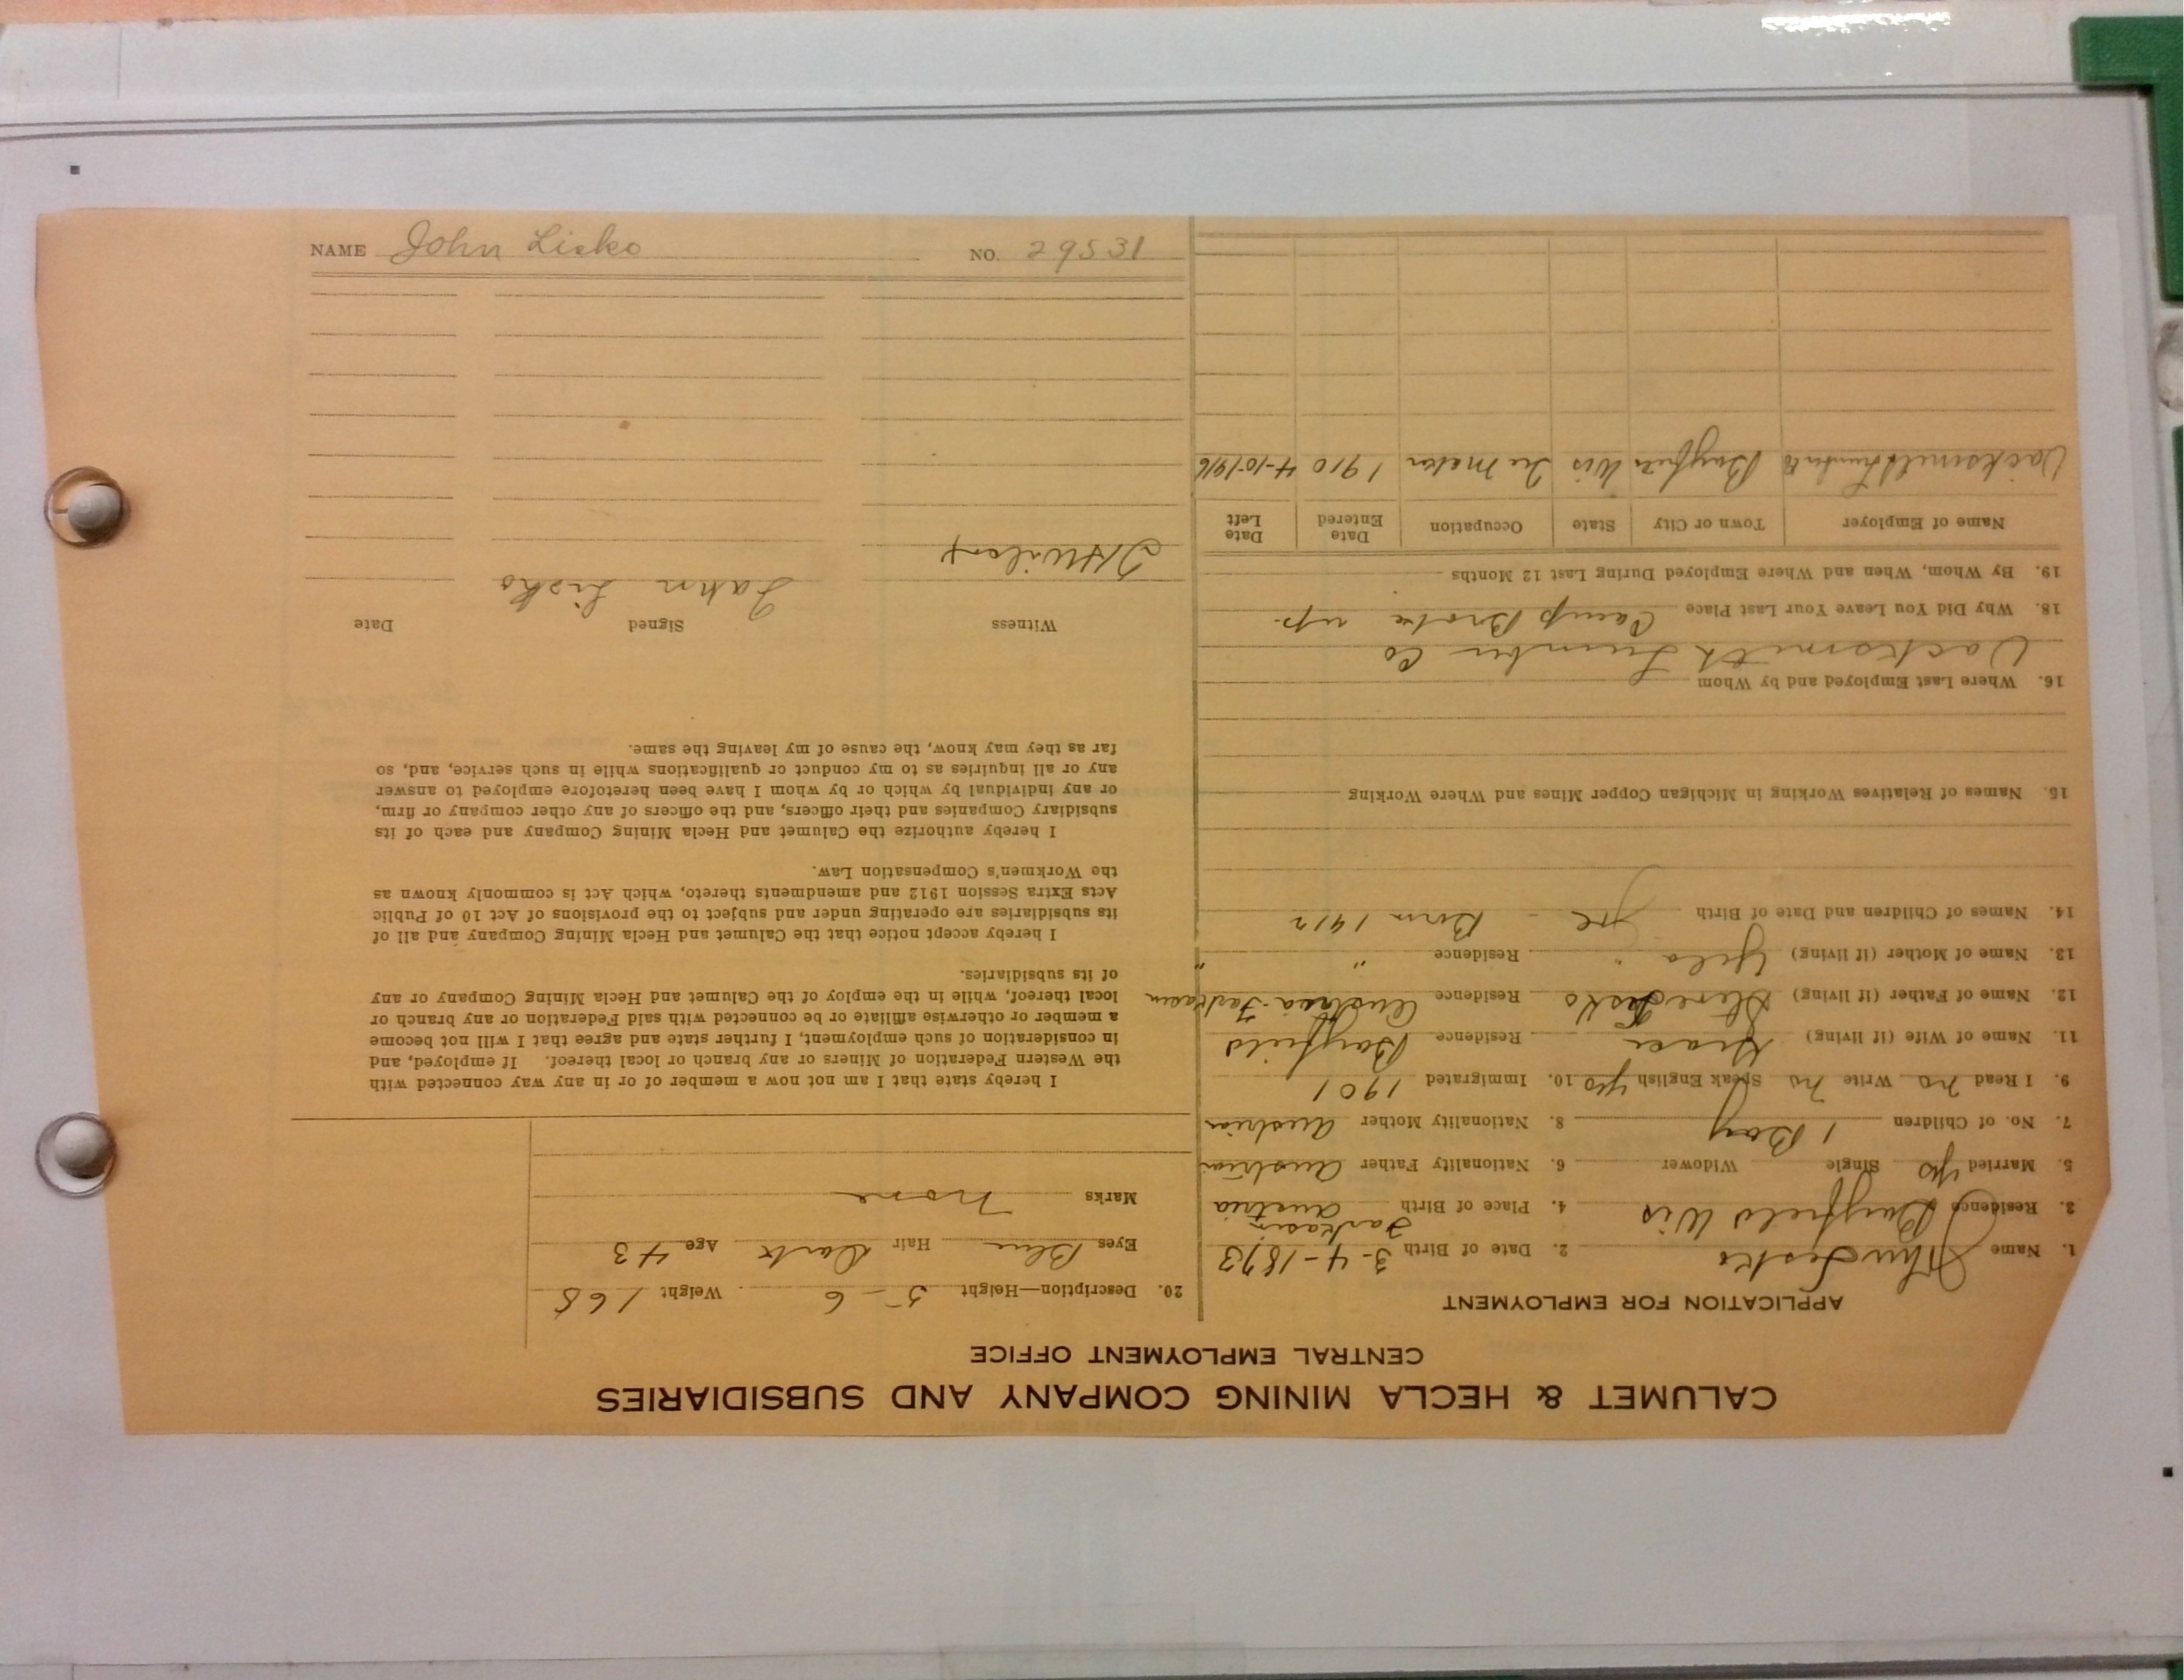 CALUMET & HECLA MINING COMPANY AND SUBSIDIARIES
CENTRAL EMPLOYMENT OFFICE
APPLICATION FOR EMPLOYMENT
1. Name John Lisko 2. Date of Birth 3-4-1873
3. Residence Bayfield Wis 4. Place of Birth Austria
5. Married yes Single Widower 6. Nationality Father Austrian
7. No. of Children 1 Boy 8. Nationality Mother Austrian
9. I Read no Write no Speak English yes 10. Immigrated 1901
11. Name of Wife (if living) Residence Bayfield
12. Name of Father (if living) Lisko Residence Austria
13. Name of Mother (if living) Residence " "
14. Names of Children and Date of Birth Joe - Born 1912
15. Names of Relatives Working in Michigan Copper Mines and Where Working
16. Where Last Employed and by Whom
Lumber Co
18. Why Did You Leave Your Last Place Camp Broke up.
19. By Whom, When and Where Employed During Last 12 Months
Name of Employer Town or City State Occupation Date Entered Date Left
Bayfield Wis 1910 4-10-1916
20. Description—Height 5-6 Weight 165
Eyes Blue Hair Dark Age 43
Marks none
I hereby state that I am not now a member of or in any way connected with
the Western Federation of Miners or any branch or local thereof. If employed, and
in consideration of such employment, I further state and agree that I will not become
a member or otherwise affiliate or be connected with said Federation or any branch or
local thereof, while in the employ of the Calumet and Hecla Mining Company or any
of its subsidiaries.
I hereby accept notice that the Calumet and Hecla Mining Company and all of
its subsidiaries are operating under and subject to the provisions of Act 10 of Public
Acts Extra Session 1912 and amendments thereto, which Act is commonly known as
the Workmen's Compensation Law.
I hereby authorize the Calumet and Hecla Mining Company and each of its
subsidiary Companies and their officers, and the officers of any other company or firm,
or any individual by which or by whom I have been heretofore employed to answer
any or all inquiries as to my conduct or qualifications while in such service, and, so
far as they may know, the cause of my leaving the same.
Witness Signed Date
John Lisko
NAME John Lisko NO. 29531